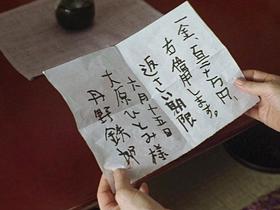 一金、百二十万円、
右借用します。
返さい期限
六月十五日
大原ひとみ様
丹野鉄郎